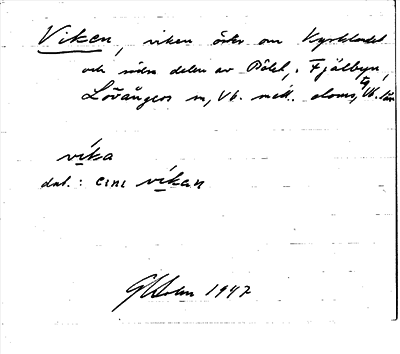 Viken, viken öster om Kyrklandet
och södra delen av Bölet, i Fjälbyn,
Lövångers sn, Vb. mell. doms, Vb. län
vika
dat.: eini vikan
GHolm 1947